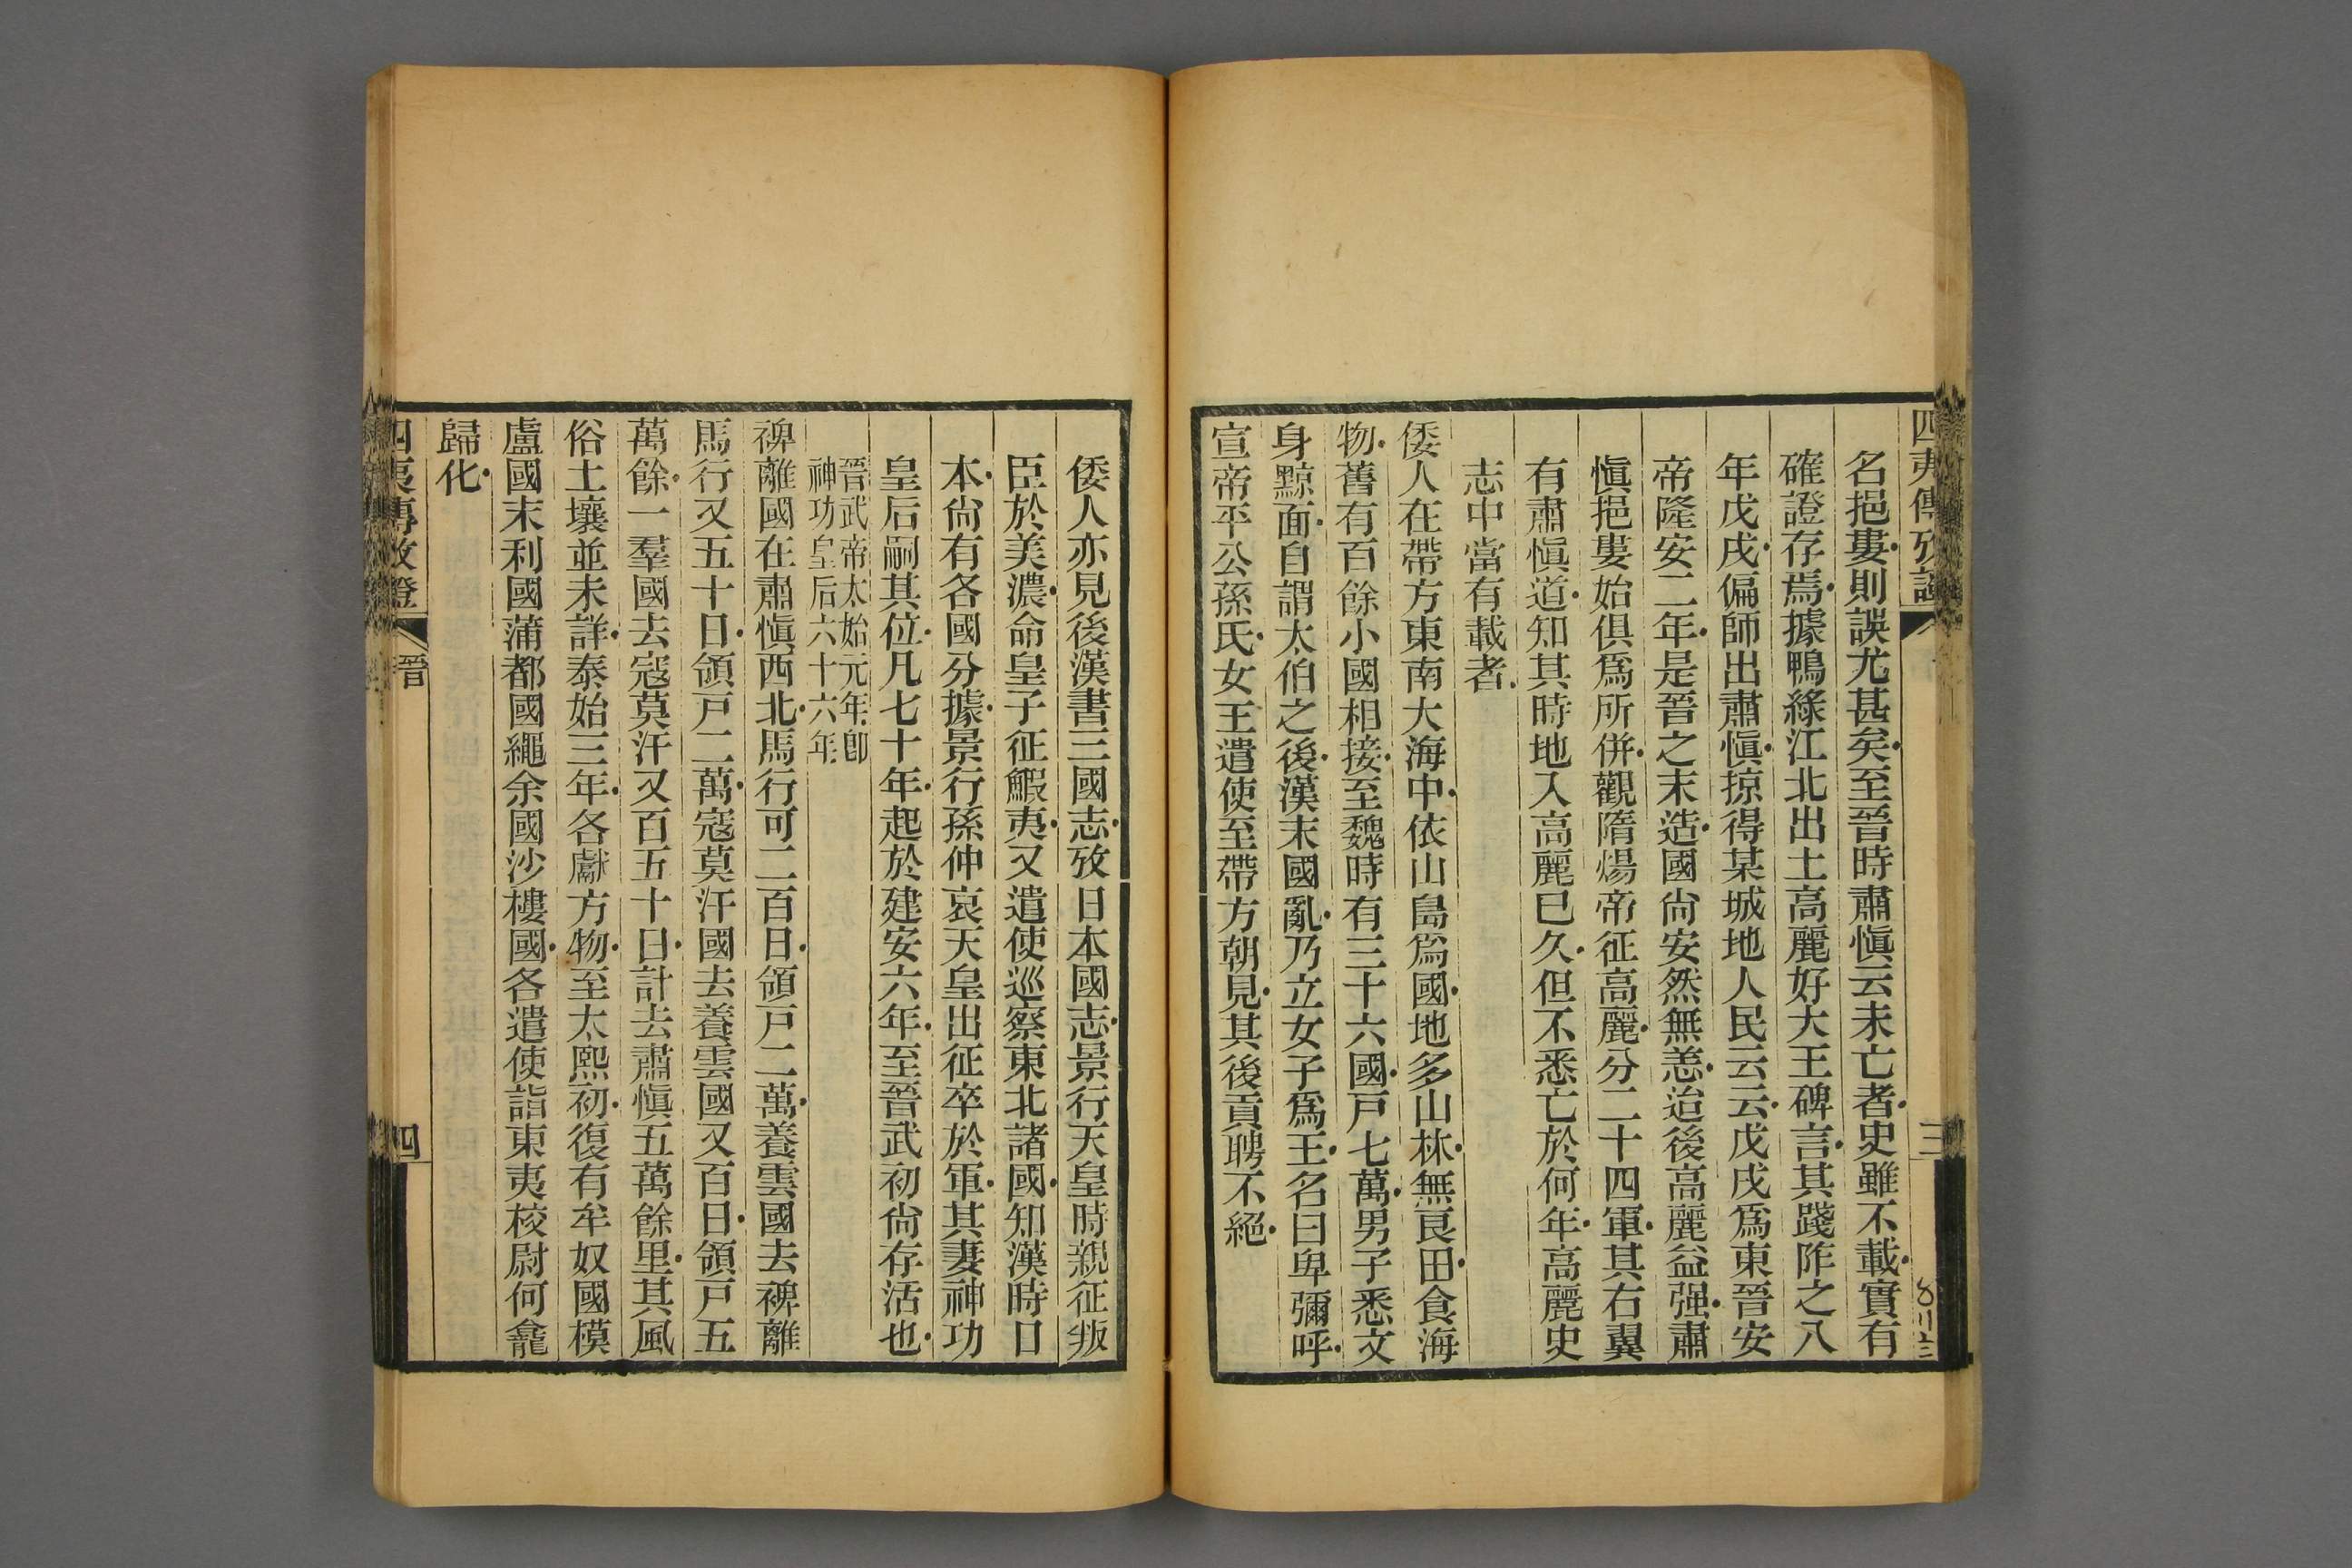 四夷傳攷證
三
名挹婁則誤尤甚矣至晉時肅愼云未亡者史雖不載實有
確證存焉據鴨綠江北出土高麗好大王碑言其踐阼之八
年戊戌偏師出肅愼掠得某城地人民云云戊戌爲東晉安
帝隆安二年是晉之末造國尙安然無恙迨後高麗益强肅
愼挹婁始俱爲所併觀隋煬帝征高麗分二十四軍其右翼
有肅愼道知其時地入高麗已久但不悉亡於何年高麗史
志中當有載者
倭人在帶方東南大海中依山島爲國地多山林無良田食海
物舊有百餘小國相接至魏時有三十六國戸七萬男子悉文
身黥面自謂太伯之後漢末國亂乃立女子爲王名曰卑彌呼
宣帝平公孫氏女王遣使至帶方朝見其後貢聘不絕
倭人亦見後漢書三國志攷日本國志景行天皇時親征叛
臣於美濃命皇子征鰕夷又遣使巡察東北諸國知漢時日
本尙有各國分據景行孫仲哀天皇出征卒於軍其妻神功
皇后嗣其位凡七十年起於建安六年至晉武初尙存活也
晉武帝太始元年卽
神功皇后六十六年
裨離國在肅愼西北馬行可二百日領戸二萬養雲國去裨離
馬行又五十日領戸二萬寇莫汗國去養雲國又百日領戸五
萬餘一羣國去寇莫汗又百五十日計去肅愼五萬餘里其風
俗土壤並未詳泰始三年各獻方物至太熙初復有牟奴國模
盧國末利國蒲都國繩余國沙樓國各遣使詣東夷校尉何龕
歸化
四夷傳攷證
晉
四